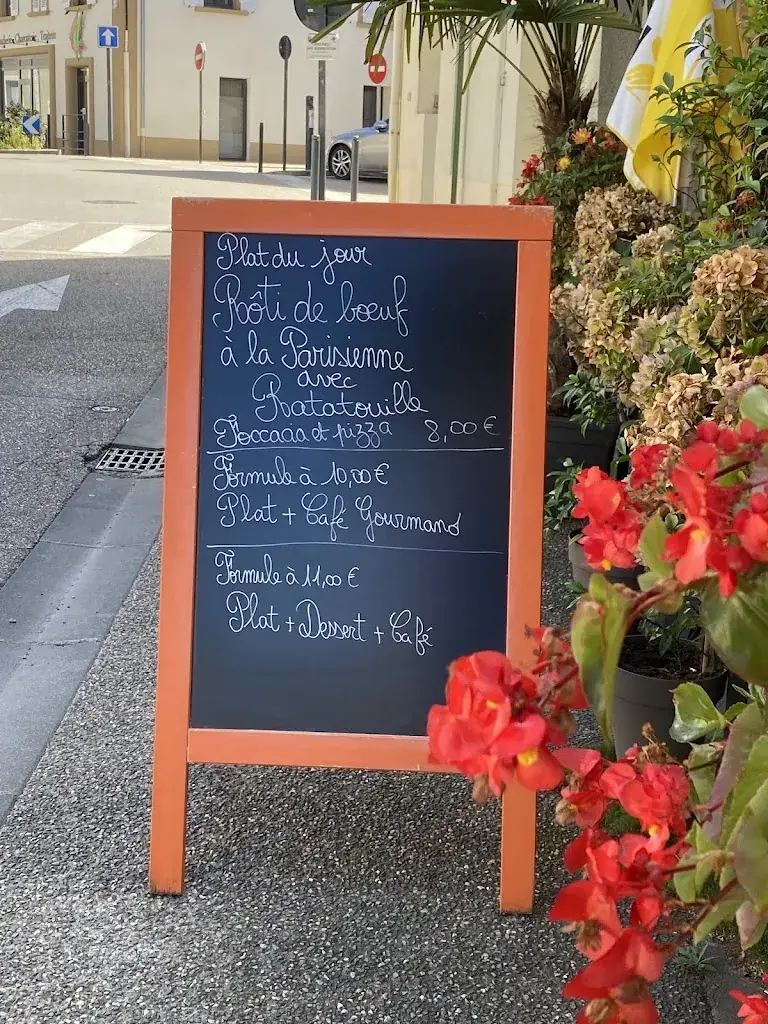 Plat du jour
Rôti de boeuf
à la Parisienne
avec
Ratatouille
Foccacia et pizza 8,00 €
Formule à 10,00 €
Plat + Café Gourmand
Formule à 11,00 €
Plat + Dessert + Café